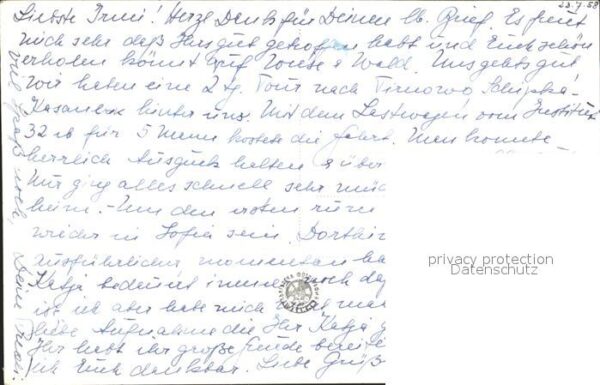 23.7.58
Liebste Irmi! Herzl. Dank für Deinen lb. Brief. Es freut
mich sehr daß Ihrs gut getroffen habt und Euch schön
erholen könnt auf Wiese & Wald. Uns gehts gut
Wir haben eine 2 tg. Tour nach Tirnowo Schipka-
Kasanlik hinter uns. Mit dem Lastwagen vom Institut
32 lb für 5 Mann kostete die Fahrt. Man konnte
herrlich Ausguck halten & über
Nur ging alles schnell sehr müd
heim. - Um den ersten
wieder in Sofia sein.
ausführlicher momentan
Katja bedauert immer noch
ist ich aber habe mich
liebe Aufnahme die Ihr Katja
Ihr habt ihr große Freude bereitet
ich Euch dankbar. Liebe Grüße
viel Spaß noch, Deine
privacy protection
Datenschutz